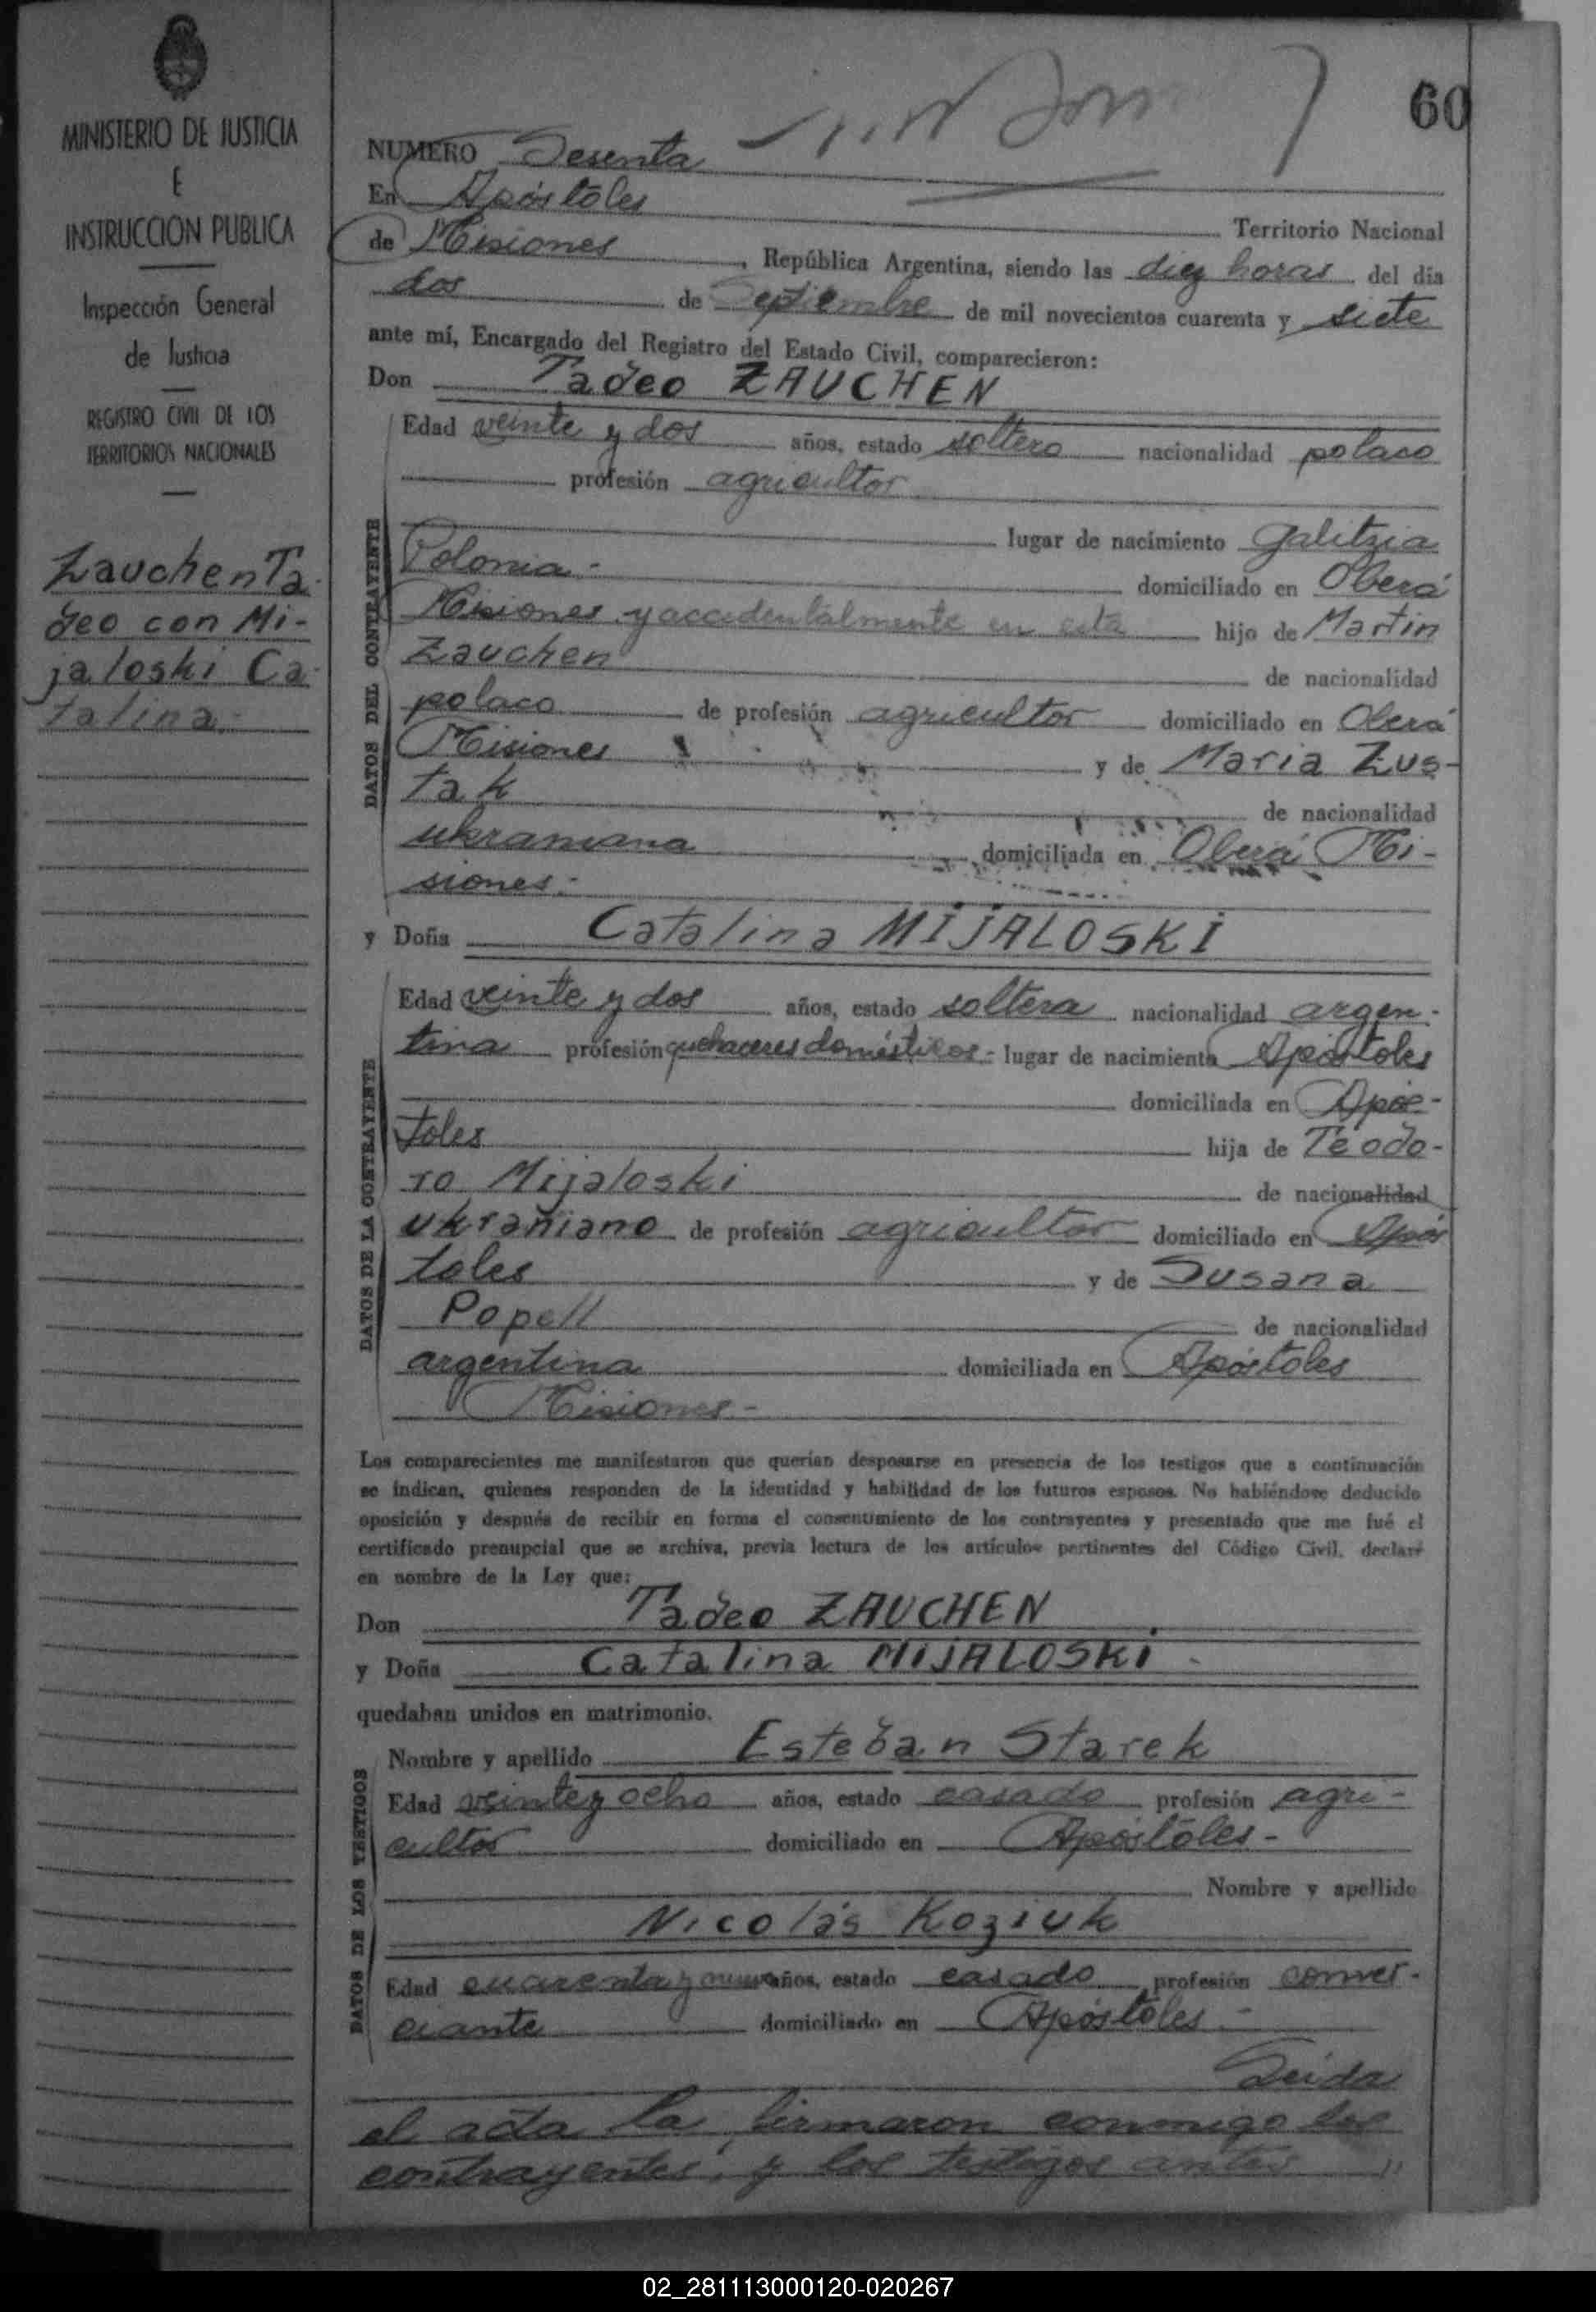 MINISTERIO DE JUSTICIA
E
INSTRUCCION PUBLICA
Inspección General
de Justicia
REGISTRO CIVIL DE LOS
TERRITORIOS NACIONALES
Zauchen Ta-
deo con Mi-
jaloski Ca-
talina.-
60
NUMERO Sesenta
En Apóstoles Territorio Nacional
de Misiones, República Argentina, siendo las diez horas del día
dos de Septiembre de mil novecientos cuarenta y siete
ante mí, Encargado del Registro del Estado Civil, comparecieron:
Don Tadeo ZAUCHEN
DATOS DEL CONTRAYENTE
Edad veinte y dos años, estado soltero nacionalidad polaco
profesión agricultor
lugar de nacimiento Galitzia
Polonia.- domiciliado en Oberá
Misiones y accidentalmente en esta hijo de Martin
Zauchen de nacionalidad
polaco de profesión agricultor domiciliado en Oberá
Misiones y de Maria Zus-
tak de nacionalidad
ukraniana domiciliada en Oberá Mi-
siones.-
y Doña Catalina MIJALOSKI
DATOS DE LA CONTRAYENTE
Edad veinte y dos años, estado soltera nacionalidad argen-
tina profesión quehaceres domésticos.- lugar de nacimiento Apóstoles
domiciliada en Após-
toles hija de Teodo-
ro Mijaloski de nacionalidad
ukraniano de profesión agricultor domiciliado en Após
toles y de Susana
Popell de nacionalidad
argentina domiciliada en Apóstoles
Misiones.-
Los comparecientes me manifestaron que querían desposarse en presencia de los testigos que a continuación
se indican, quienes responden de la identidad y habilidad de los futuros esposos. No habiéndose deducido
oposición y después de recibir en forma el consentimiento de los contrayentes y presentado que me fué el
certificado prenupcial que se archiva, previa lectura de los artículos pertinentes del Código Civil, declaré
en nombre de la Ley que:
Don Tadeo ZAUCHEN
y Doña Catalina MIJALOSKI -
quedaban unidos en matrimonio.
DATOS DE LOS TESTIGOS
Nombre y apellido Esteban Starek
Edad veinte y ocho años, estado casado profesión agri-
cultor domiciliado en Apóstoles-
Nombre y apellido
Nicolás Koziuk
Edad cuarenta y nueve años, estado casado profesión comer-
ciante domiciliado en Apóstoles.-
Leida
el acta la firmaron conmigo los
contrayentes, y los testigos antes //
02_281113000120-020267